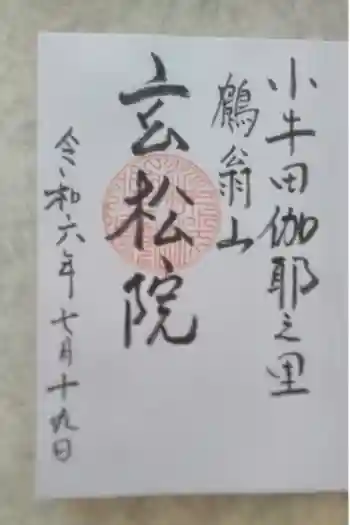 小牛田伽耶之里
鶴翁山
玄松院
令和六年七月十九日